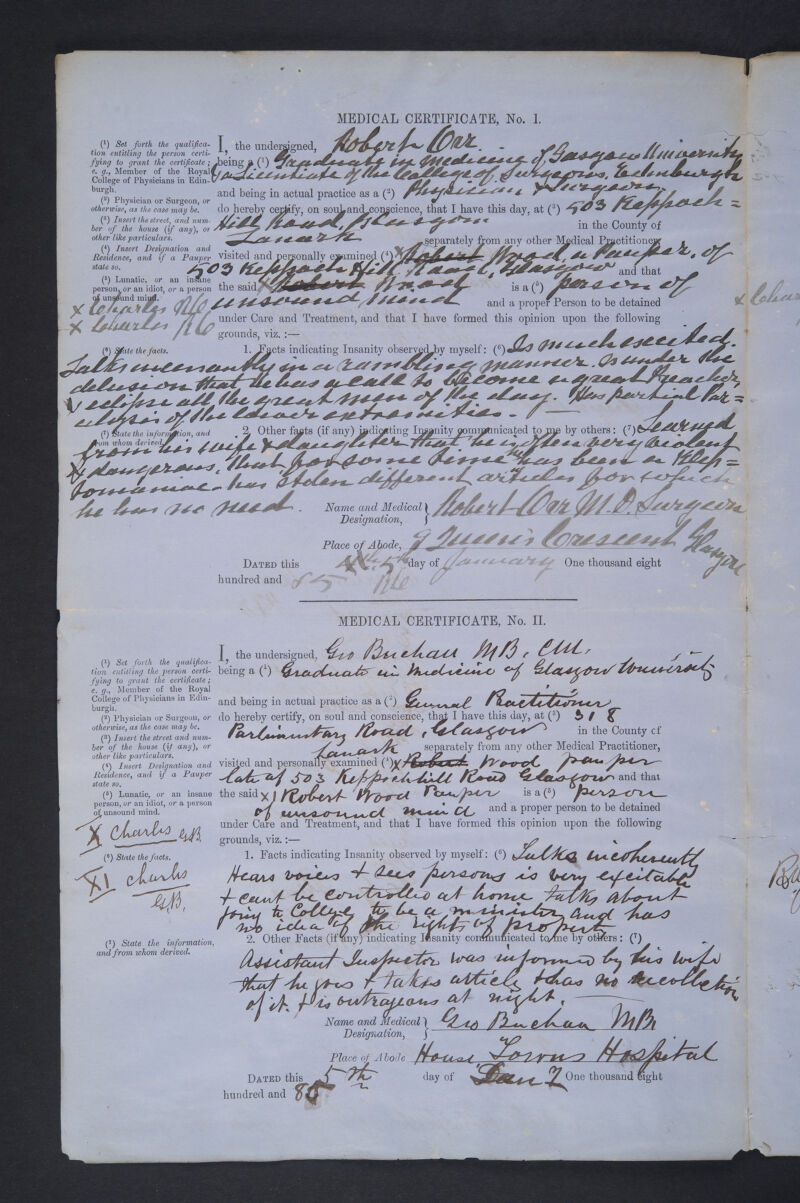 MEDICAL CERTIFICATE, No. I.
(¹) Set forth the qualifica-
tion entitling the person certi-
fying to grant the certificate;
e. g., Member of the Royal
College of Physicians in Edin-
burgh.
(²) Physician or Surgeon, or
otherwise, as the case may be.
(³) Insert the street, and num-
ber of the house (if any), or
other like particulars.
(⁴) Insert Designation and
Residence, and if a Pauper
state so.
(⁵) Lunatic, or an insane
person, or an idiot, or a person
of unsound mind.
x Charles
x Charles
(⁶) State the facts.
(⁷) State the information, and
from whom derived.
I, the undersigned, Robert Orr
being a (¹) Graduate in medicine of Glasgow University
& a Licentiate of the College of Surgeons, Edinburgh
and being in actual practice as a (²) Physician & Surgeon
do hereby certify, on soul and conscience, that I have this day, at (³) 503 Keppoch=
Hill Road, Glasgow in the County of
Lanark separately from any other Medical Practitioner,
visited and personally examined (⁴) x Robert Wood, a Pauper, of
503 Keppoch Hill Road, Glasgow and that
the said x Robert Wood is a (⁵) person of
unsound mind and a proper Person to be detained
under Care and Treatment, and that I have formed this opinion upon the following
grounds, viz. :—
1. Facts indicating Insanity observed by myself: (⁶) Is much excited.
Talks incessantly in a rambling manner. Is under the
delusion that he has a call to become a great Preacher,
& eclipse all the great men of the day. Has partial Par=
alysis of the lower extremities. -
2. Other facts (if any) indicating Insanity communicated to me by others: (⁷) Learned
from his wife & daughter that he is often very violent
& dangerous, that for some time he has been a Klep=
tomaniac - has stolen different articles for which
he has no need.
Name and Medical Designation, Robert Orr M.D. Surgeon
Place of Abode, 9 Queen's Crescent Glasgow
DATED this 5th day of January One thousand eight
hundred and 85
MEDICAL CERTIFICATE, No. II.
(¹) Set forth the qualifica-
tion entitling the person certi-
fying to grant the certificate;
e. g., Member of the Royal
College of Physicians in Edin-
burgh.
(²) Physician or Surgeon, or
otherwise, as the case may be.
(³) Insert the street and num-
ber of the house (if any), or
other like particulars.
(⁴) Insert Designation and
Residence, and if a Pauper
state so.
(⁵) Lunatic, or an insane
person, or an idiot, or a person
of unsound mind.
X Charles G.B.
(⁶) State the facts.
XI Charles
G.B.
(⁷) State the information,
and from whom derived.
I, the undersigned, Geo Buchan MB, CM.
being a (¹) Graduate in Medicine of Glasgow University
and being in actual practice as a (²) General Practitioner
do hereby certify, on soul and conscience, that I have this day, at (³) 318
Parliamentary Road, Glasgow in the County of
Lanark separately from any other Medical Practitioner,
visited and personally examined (⁴) x Robert Wood pauper
late of 503 Keppochhill Road Glasgow and that
the said x1 Robert Wood Pauper is a (⁵) person
of unsound mind and a proper person to be detained
under Care and Treatment, and that I have formed this opinion upon the following
grounds, viz. :—
1. Facts indicating Insanity observed by myself: (⁶) Talks incoherently
Hears voices & sees persons is very excitable
& cant be controlled at home talks about
going to College to be a minister and has
no idea of the rights of property
2. Other Facts (if any) indicating Insanity communicated to me by others: (⁷)
Assistant Inspector was informed by his wife
that he goes & takes articles & has no recollection
of it. & is outrageous at night.
Name and Medical Designation, Geo Buchan MB
Place of Abode House Towns Hospital
DATED this 5th day of Jany One thousand eight
hundred and 85
x Char